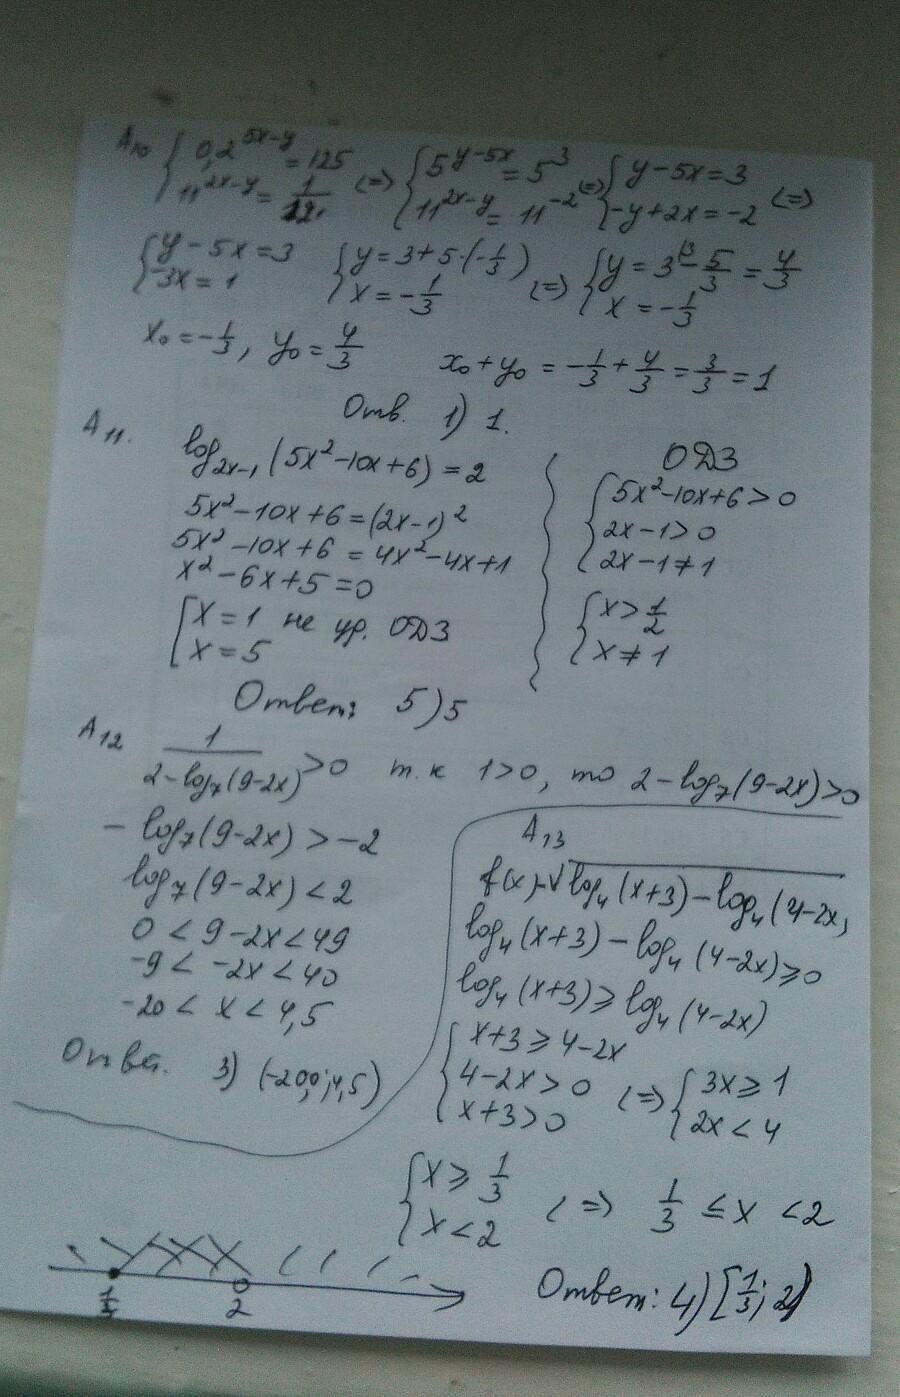 А10 { 0,2^(5x-y) = 125 <=> { 5^(y-5x) = 5^3 <=> { y-5x=3 <=>
{ 11^(2x-y) = 1/121 { 11^(2x-y) = 11^(-2) { -y+2x=-2
{ y-5x=3 { y=3+5·(-1/3) <=> { y=3^(\3)-5/3=4/3
{ -3x=1 { x=-1/3 { x=-1/3
x0=-1/3, y0=4/3 x0+y0=-1/3+4/3=3/3=1
Отв. 1) 1.
А11. log_(2x-1)(5x²-10x+6)=2
5x²-10x+6=(2x-1)²
5x²-10x+6=4x²-4x+1
x²-6x+5=0
[ x=1 не ур. ОДЗ
[ x=5
ОДЗ
{ 5x²-10x+6>0
{ 2x-1>0
{ 2x-1≠1
{ x>1/2
{ x≠1
Ответ: 5) 5
А12 1/(2-log_7(9-2x))>0 т.к 1>0, то 2-log_7(9-2x)>0
-log_7(9-2x)>-2
log_7(9-2x)<2
0<9-2x<49
-9<-2x<40
-20<x<4,5
Отв. 3) (-20,0;4,5)
А13
f(x)=√(log_4(x+3)-log_4(4-2x)
log_4(x+3)-log_4(4-2x)≥0
log_4(x+3)≥log_4(4-2x)
{ x+3≥4-2x
{ 4-2x>0 <=> { 3x≥1
{ x+3>0 { 2x<4
{ x≥1/3 <=> 1/3≤x<2
{ x<2
1/3 2
Ответ: 4) [1/3; 2)